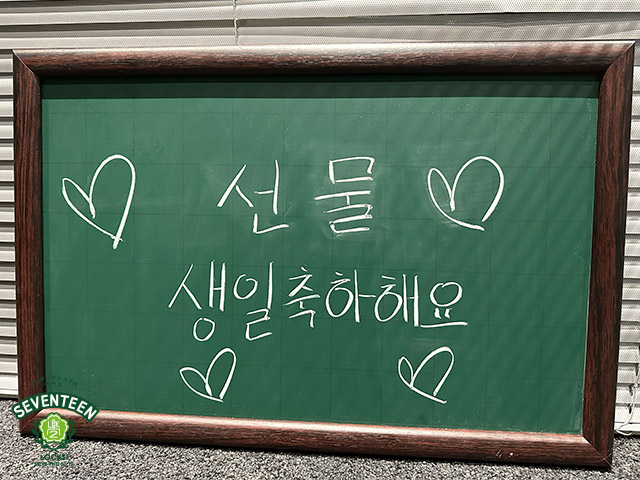 선물
생일축하해요
SEVENTEEN